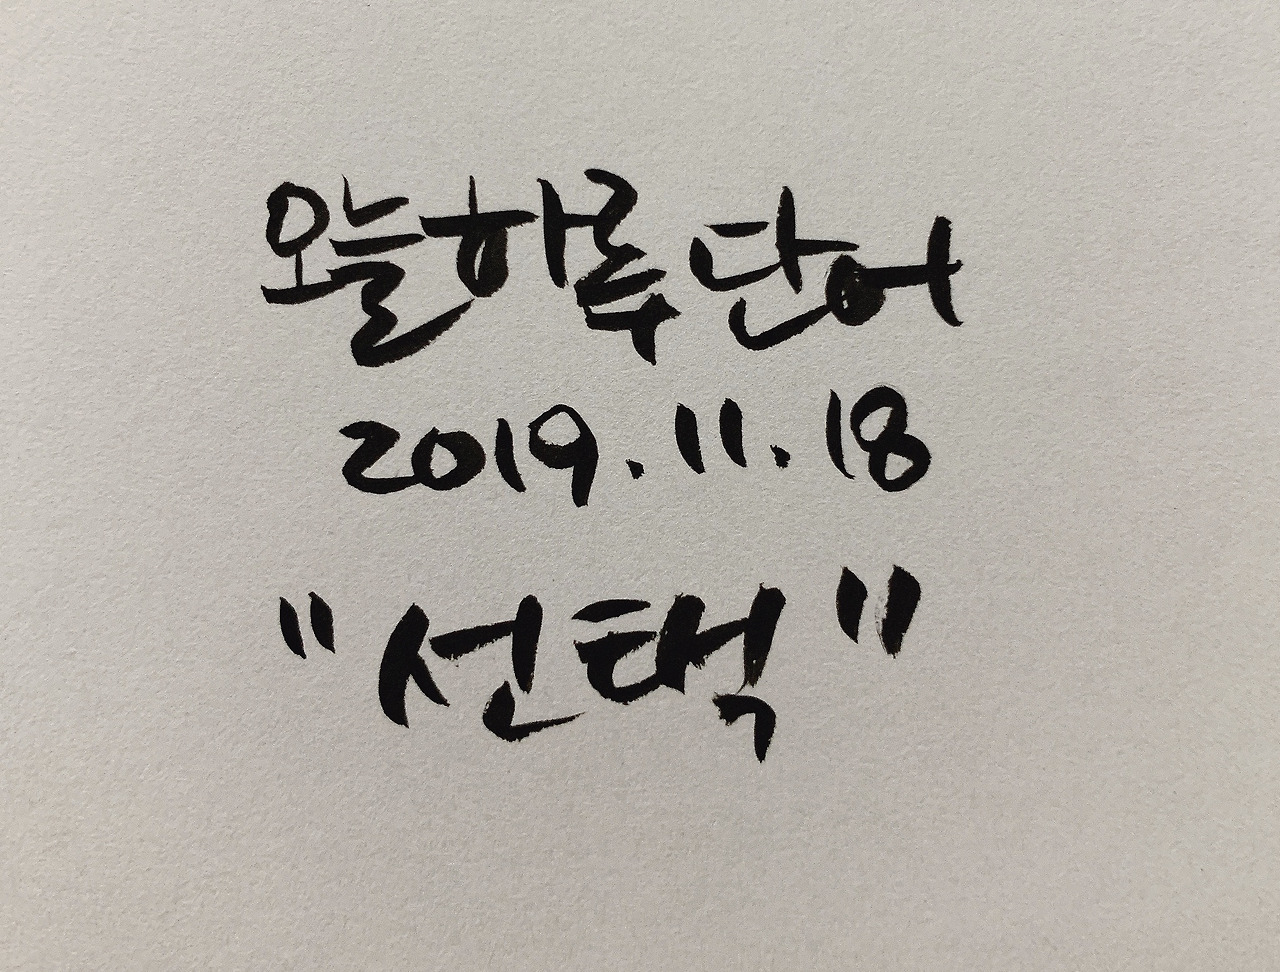 오늘하루단어
2019.11.18
"선택"